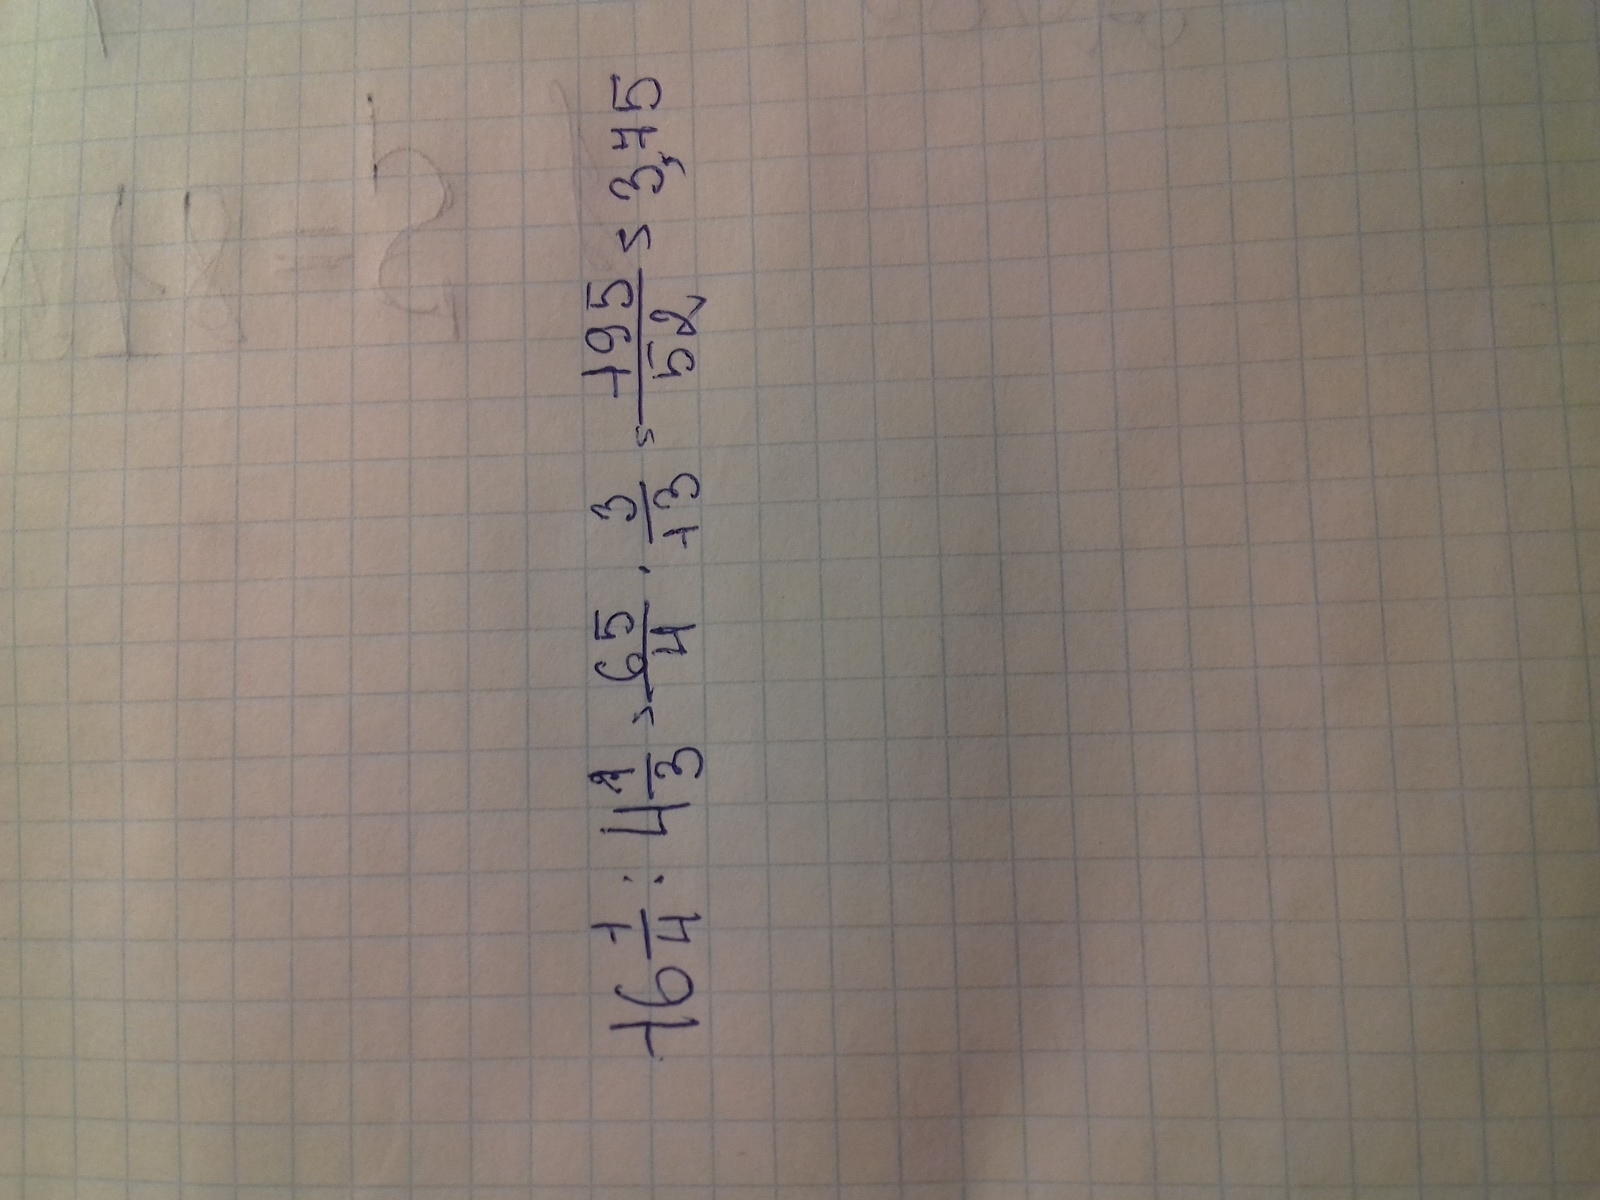 16 1/4 : 4 1/3 = 65/4 · 3/13 = 195/52 = 3,75